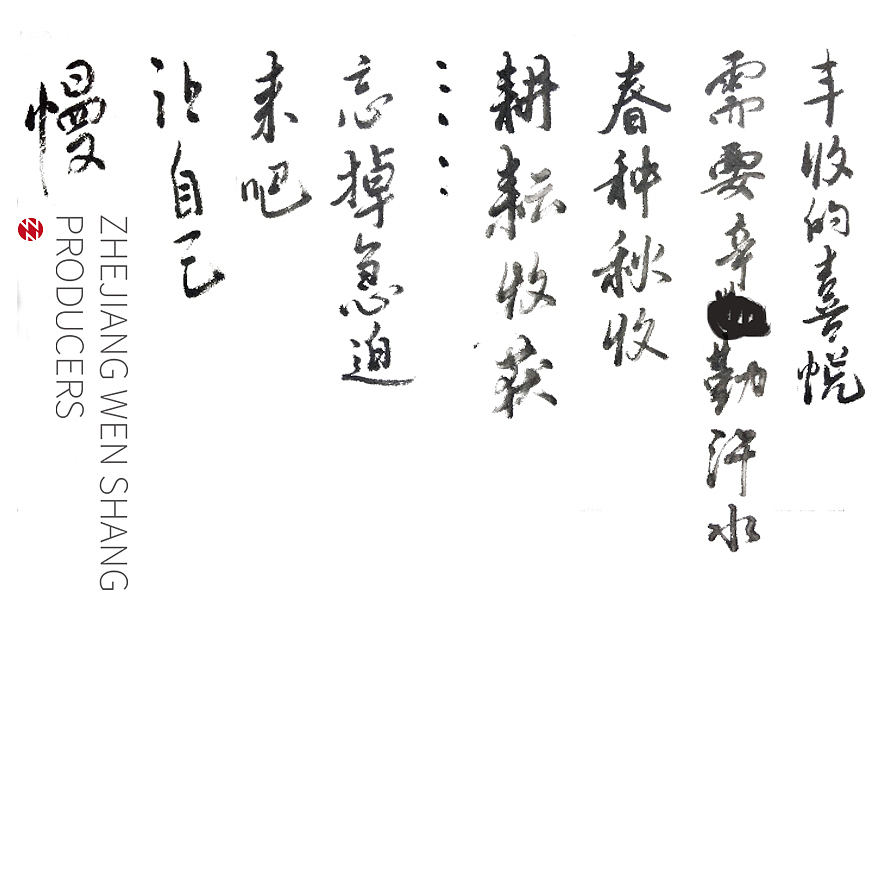 丰收的喜悦
需要辛勤汗水
春种秋收
耕耘收获
……
忘掉急迫
来吧
让自己
慢
ZHEJIANG WEN SHANG
PRODUCERS